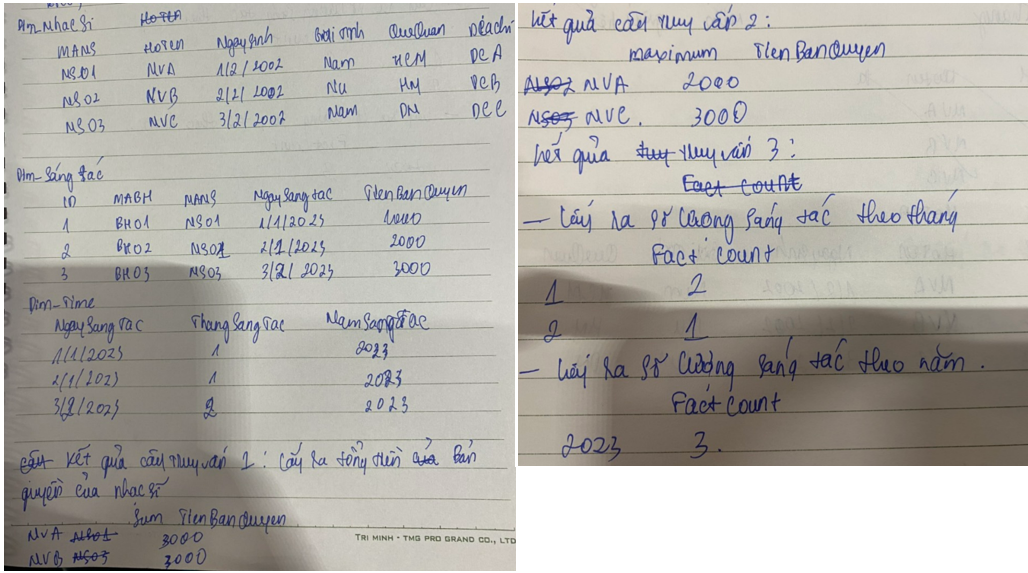 Dim_Nhac Si HoTen
MANS HoTen NgaySinh Gioi Tinh QueQuan Diachi
NS01 NVA 1/2/2002 Nam HCM DCA
NS02 NVB 2/2/2002 Nu HN DCB
NS03 NVC 3/2/2002 Nam DN DCC
Dim_Sáng tác
ID MABH MANS NgaySangtac TienBanQuyen
1 BH01 NS01 1/1/2023 1000
2 BH02 NS01 2/1/2023 2000
3 BH03 NS03 3/2/2023 3000
Dim_Time
NgaySangTac ThangSangTac NamSangTac
1/1/2023 1 2023
2/1/2023 1 2023
3/2/2023 2 2023
câu Kết quả câu truy vấn 1: Lấy ra tổng tiền của bản
quyền của nhạc sĩ
Sum TienBanQuyen
NVA NS01 3000
NVB NS03 3000
TRI MINH - TMG PRO GRAND CO., LTD
Kết quả câu truy vấn 2:
maximum TienBanQuyen
NS02 NVA 2000
NS03 NVC. 3000
Kết quả truy truy vấn 3:
Fact count
- Lấy ra số lương sáng tác theo tháng
Fact count
1 2
2 1
- Lấy ra số lượng sáng tác theo năm.
Fact count
2023 3.